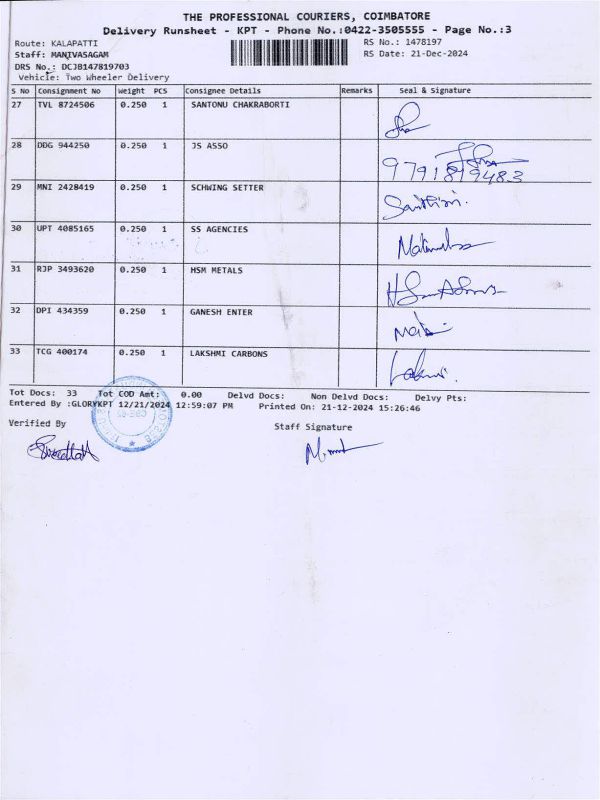 THE PROFESSIONAL COURIERS, COIMBATORE
Delivery Runsheet - KPT - Phone No.:0422-3505555 - Page No.:3
Route: KALAPATTI RS No.: 1478197
Staff: MANIVASAGAM RS Date: 21-Dec-2024
DRS No.: DCJB147819703
Vehicle: Two Wheeler Delivery
S No Consignment No Weight PCS Consignee Details Remarks Seal & Signature
27 TVL 8724506 0.250 1 SANTONU CHAKRABORTI
28 DDG 944250 0.250 1 JS ASSO
9791819483
29 MNI 2428419 0.250 1 SCHWING SETTER
30 UPT 4085165 0.250 1 SS AGENCIES
31 RJP 3493620 0.250 1 HSM METALS
32 DPI 434359 0.250 1 GANESH ENTER
33 TCG 400174 0.250 1 LAKSHMI CARBONS
Tot Docs: 33 Tot COD Amt: 0.00 Delvd Docs: Non Delvd Docs: Delvy Pts:
Entered By :GLORYKPT 12/21/2024 12:59:07 PM Printed On: 21-12-2024 15:26:46
Verified By Staff Signature